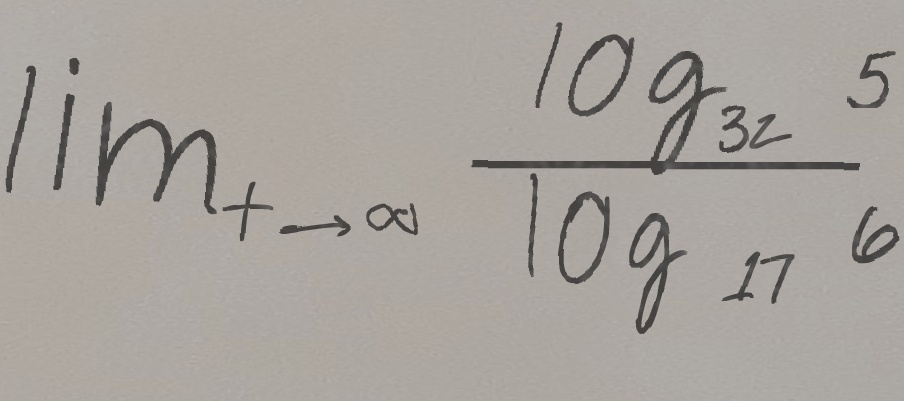 \lim_{t \to \infty} \frac{\log_{32} 5}{\log_{17} 6}